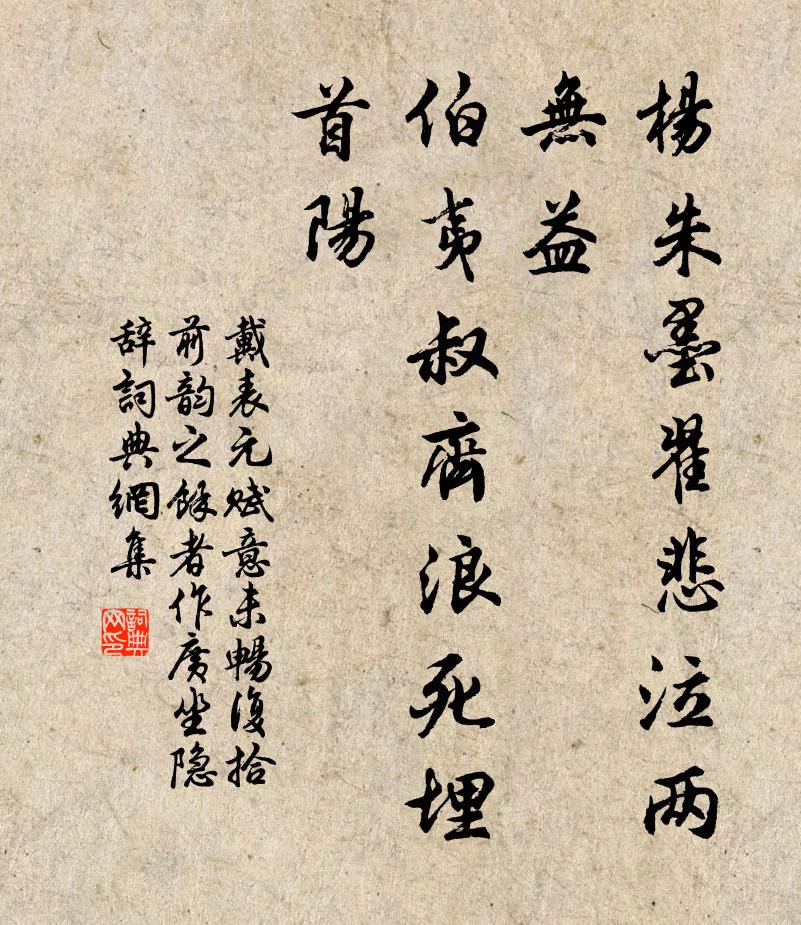 楊朱墨翟悲泣两
無益
伯夷叔齊浪死埋
首陽
戴表元赋意未暢復拾
前韵之餘者作廣坐隐
辞詞典網集
詞典
网印